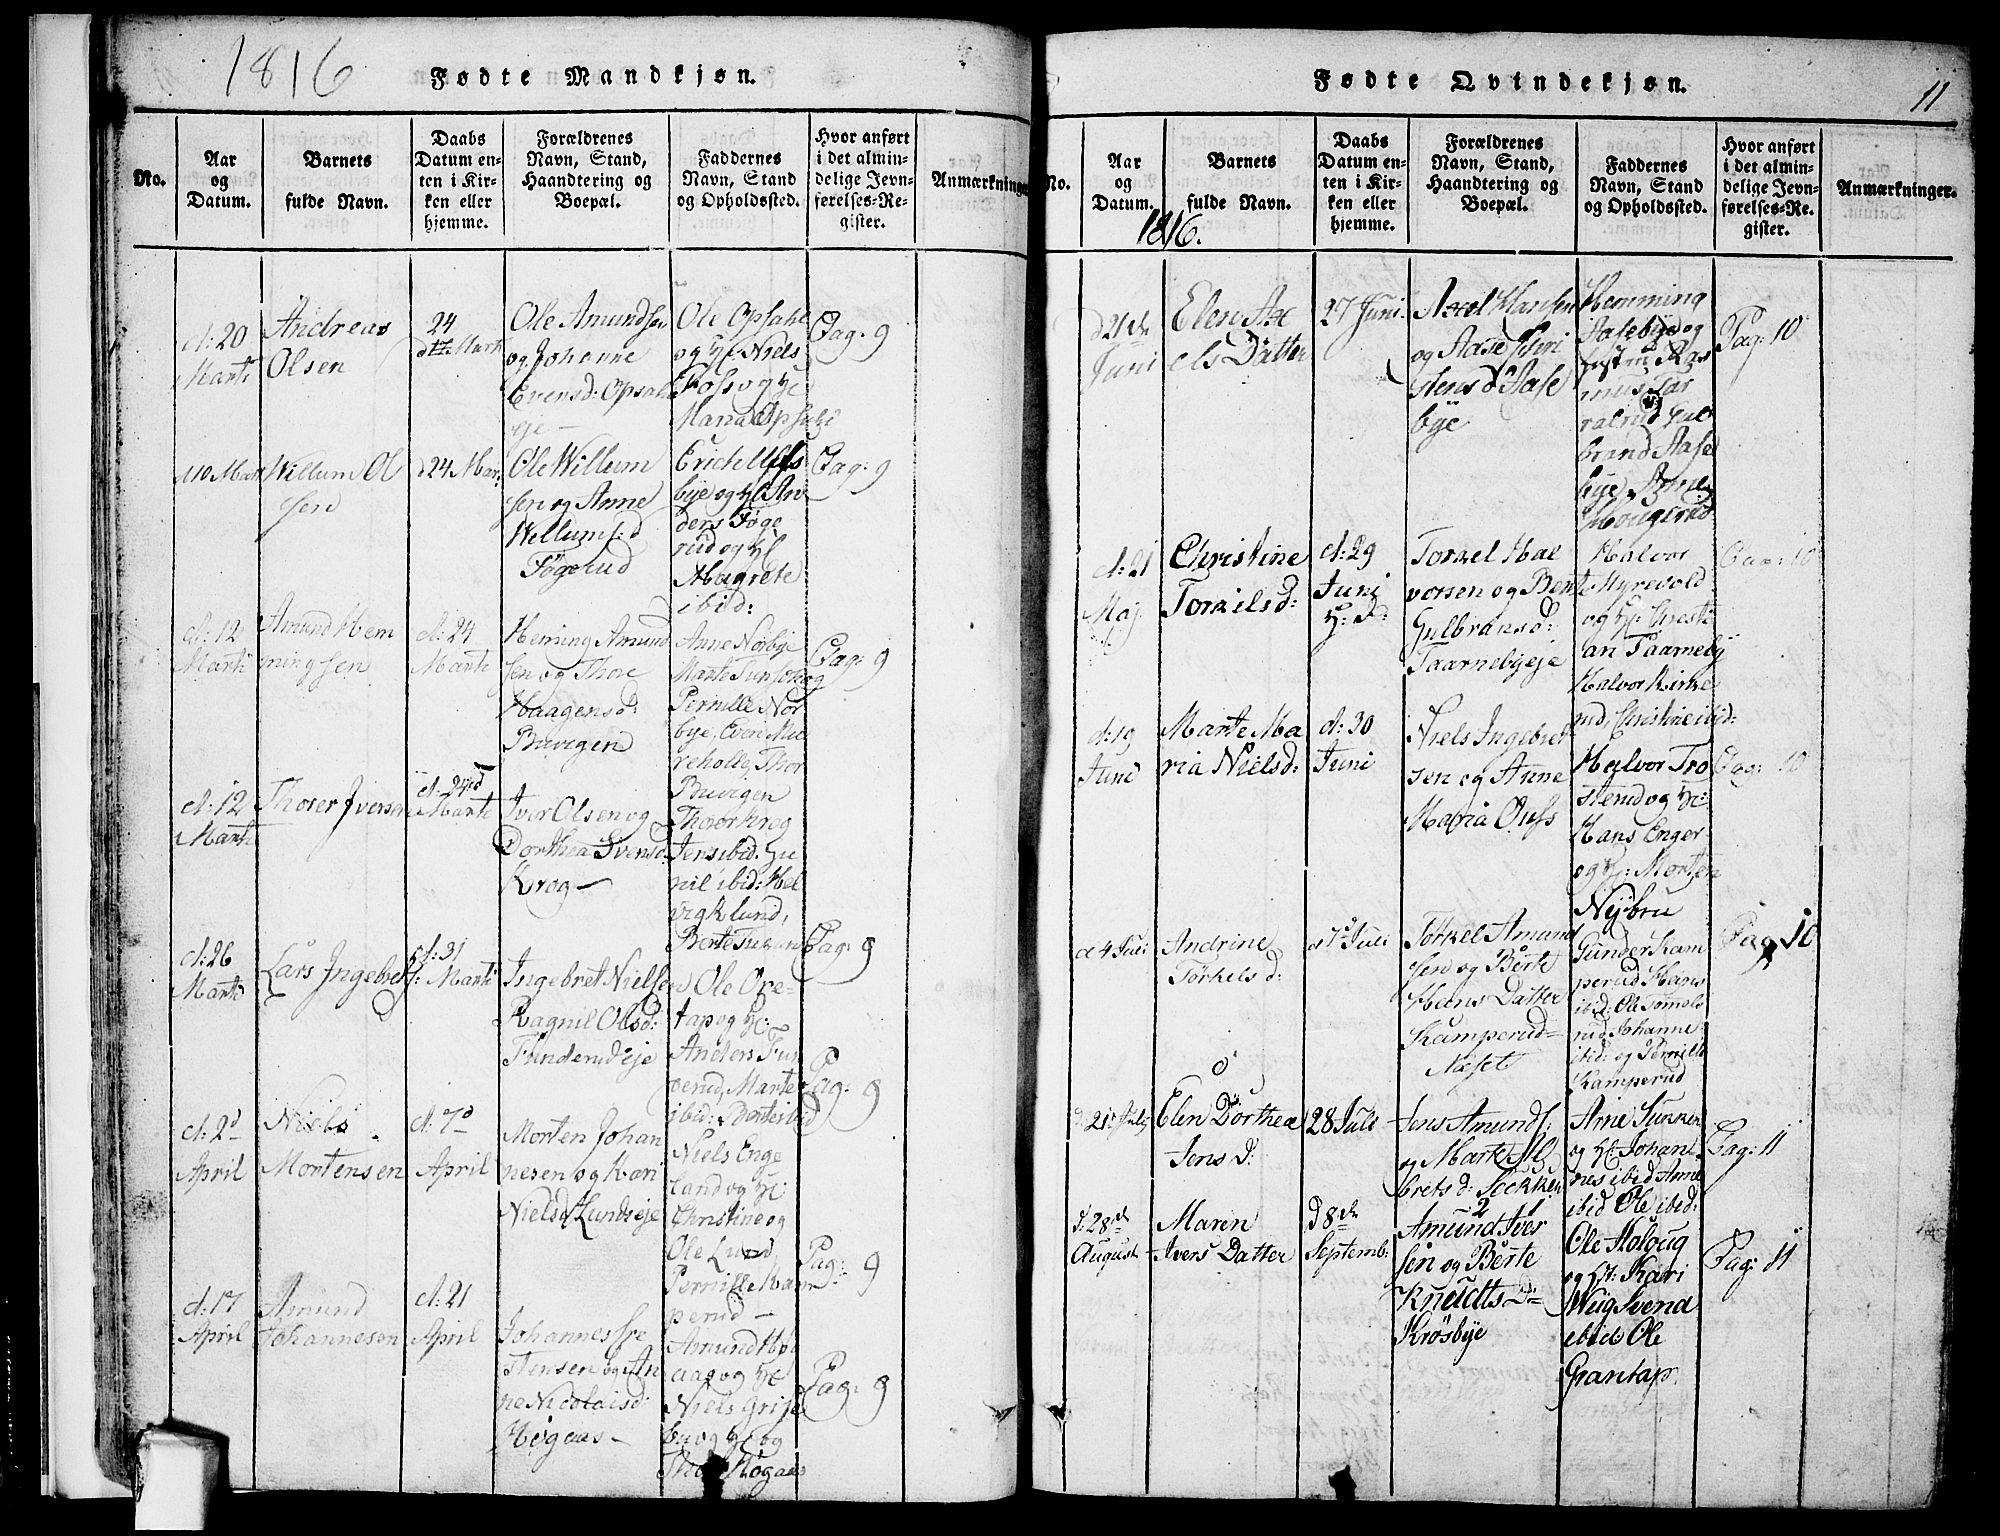 1816
Fødte Mandkjøn.
No.
Aar
og
Datum.
Barnets
fulde Navn.
Daabs
Datum en-
ten i Kir-
ken eller
hjemme.
Forældrenes
Navn, Stand,
Haandtering og
Boepæl.
Faddernes
Navn, Stand
og Opholdssted.
Hvor anført
i det almin-
delige Jevn-
førelses-Re-
gister.
Anmærkninger
d: 20
Marti
Andreas
Olsen
24
Ole Amundsen
og Johanne
Evensd: Opsahl
eje -
Ole Opsahl
og H: Niels
Foss og H:
Maria Opsahl
Pag: 9
Willum Ol
sen
d 24 Mar:
Ole Willum
sen og Anne
Willums:d
Føgerud
bye og H: An
ders Føge
rud og H:
Magrete
ibid:
Pag: 9
d: 12
Marti
Amund Hem
mingsen
d: 24
Marti
Heming Amund
sen og Thore
Haagensd:
Buvigen
Anne Norbye
Pernille Nor
bye, Even
reholle, Thor
Buvigen
Pag: 9
d: 12
Marti
Thorer Iversen
Marti
Iver Olsen og
Dorthea Svensd:
Krog -
Thorer Krog
Jens ibid:
nil ibid: Hel
vig Klund,
Berte
Pag: 9
d: 26
Marti
Lars Ingebret
d: 31
Marti
Ingebret Nielsen
Ragnil Olsd:
Funderud eje
Ole Ore-
tap og H:
Anders Fun
derud, Marte
ibid: Dorte ibid
Pag: 9
d: 2d
April
Niels
Mortensen
d: 7d
April
Morten Johan
nesen og Kari
Nielsd Lundseje
Niels Enge
land og H:
Christine og
Ole Lund
Pernille Kam
perud -
Pag: 9
d: 17
April
Amund
Johannesen
d: 21
April
Johannes
stensen og An
ne Nicolaisd:
Høgaas -
Amund Høg
aas og H:
Niels Grise
bu og H: og
Thor Høgaas
Pag: 9
Fødte Qvindekjøn.
11
No.
Aar
og
Datum.
Barnets
fulde Navn.
Daabs
Datum en-
ten i Kir-
ken eller
hjemme.
Forældrenes
Navn, Stand,
Haandtering og
Boepæl.
Faddernes
Navn, Stand
og Opholdssted.
Hvor anført
i det almin-
delige Jevn-
førelses-Re-
gister.
Anmærkninger.
1816.
Juni
Elen Ax
els Datter
27 Juni
Axel Hansen
og Aase Chri
stens d Aase
bye
Hemming
Aasebye og
Ras
mus Tar
ralrud Gul
brand Aase
bye, Anne
Hougerud
Pag: 10
d: 21
Maj
Christine
Torkilsd:
d: 29
Juni
H: D:
Torkel Hal
vorsen og Bent
Gulbransd:
Taarnebyeje
Halvor
Myrevold
og H: Christi
an Taarneby
Halvor Kirke
rud, Christine ibid:
Pag: 10
d: 19
Juni
Marte Ma
ria Nielsd:
d: 30
Juni
Niels Ingebret
sen og Anne
Maria
Halvor Tro
sterud og H:
Hans Enger
og H: Morten
Nybru
Pag: 10
d 4 Juli
Andrine
Torkels d:
d 7 Juli
Torkel Amund
sen og Berte
Hans Datter
Kamperud-
Næset
Gunder Kam
perud Hans
ibid: Ole
rud Johanne
ibid: og Pernille
Kamperud
Pag 10
Elen Dorthea
Jens d:
28 Juli
Jens Amunds:
og Marte
brets d:
Arne
og H: Johan
nes ibid Anne
ibid Ole ibid:
Pag: 11
d: 28de
August
Maren
Ivers Datter
D 8de
Septemb:
Amund Iver
sen og Berte
Knudtts D-
Krøsbye
Ole Holoug
og H: Kari
Svend
ibid Ole
Grantap.
Pag: 11